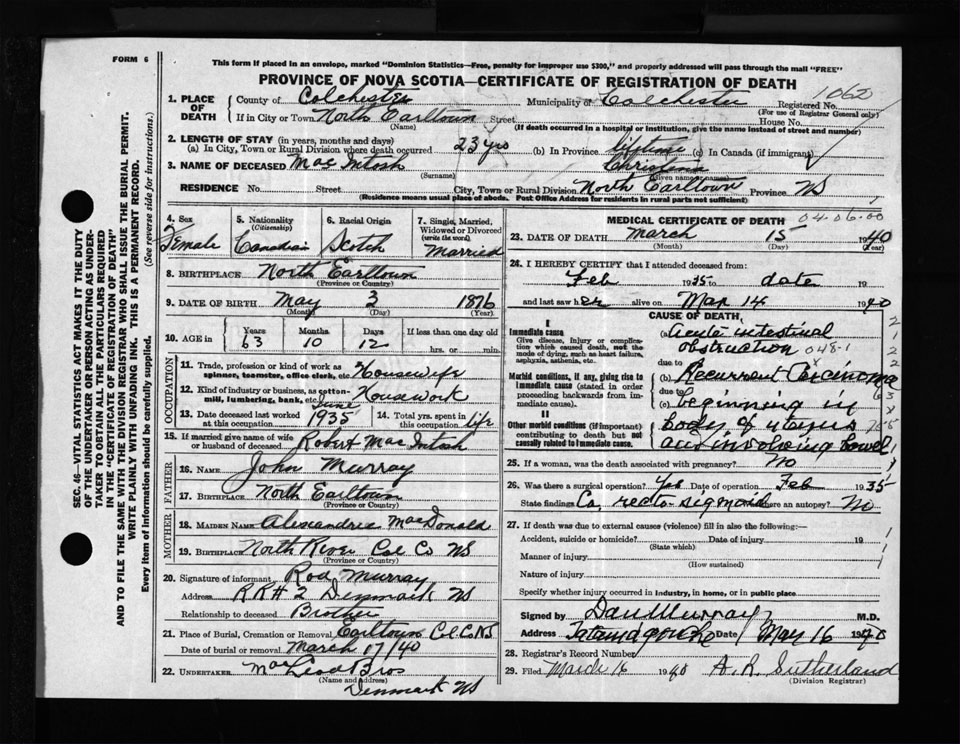 FORM 6
This form if placed in an envelope, marked "Dominion Statistics—Free, penalty for improper use $300," and properly addressed will pass through the mail "FREE"
PROVINCE OF NOVA SCOTIA—CERTIFICATE OF REGISTRATION OF DEATH
1062
1. PLACE OF DEATH
County of Colchester Municipality of Colchester Registered No.
(For use of Registrar General only)
If in City or Town North Earltown Street House No.
(Name) (If death occurred in a hospital or institution, give the name instead of street and number)
2. LENGTH OF STAY (in years, months and days)
(a) In City, Town or Rural Division where death occurred 23 yrs (b) In Province lifetime (c) In Canada (if immigrant)
3. NAME OF DECEASED MacIntosh Christina
(Surname) (Given name or names)
RESIDENCE No. Street City, Town or Rural Division North Earltown Province NS
(Residence means usual place of abode. Post Office Address for residents in rural parts not sufficient)
4. Sex
Female
5. Nationality
(Citizenship)
Canadian
6. Racial Origin
Scotch
7. Single, Married, Widowed or Divorced
(write the word)
Married
8. BIRTHPLACE North Earltown
(Province or Country)
9. DATE OF BIRTH May 3 1876
(Month) (Day) (Year)
10. AGE in
Years Months Days If less than one day old
63 10 12 hrs. or min.
OCCUPATION
11. Trade, profession or kind of work as spinner, teamster, office clerk, etc. Housewife
12. Kind of industry or business, as cotton-mill, lumbering, bank, etc. Housework
13. Date deceased last worked at this occupation June 1935
14. Total yrs. spent in this occupation life
15. If married give name of wife or husband of deceased Robert MacIntosh
FATHER
16. NAME John Murray
17. BIRTHPLACE North Earltown
(Province or Country)
MOTHER
18. MAIDEN NAME MacDonald
19. BIRTHPLACE North River Col Co NS
(Province or Country)
20. Signature of informant Rod Murray
Address RR# 2 Denmark NS
Relationship to deceased Brother
21. Place of Burial, Cremation or Removal Earltown Col. Co. NS
Date of burial or removal March 17/40
22. UNDERTAKER MacLeod Bros
(Name and address)
Denmark NS
MEDICAL CERTIFICATE OF DEATH 04.06.00
23. DATE OF DEATH March 15 1940
(Month) (Day) (Year)
24. I HEREBY CERTIFY that I attended deceased from:
Feb 1935 to date 19
and last saw her alive on Mar 14 1940
CAUSE OF DEATH
I
Immediate cause
Give disease, injury or complication which caused death, not the mode of dying, such as heart failure, asphyxia, asthenia, etc.
(a) Acute intestinal
obstruction 048-1
due to
Morbid conditions, if any, giving rise to immediate cause (stated in order proceeding backwards from immediate cause).
(b) Recurrent Carcinoma
due to
(c) beginning in
II
Other morbid conditions (if important) contributing to death but not causally related to immediate cause.
body of uterus
and involving bowel
25. If a woman, was the death associated with pregnancy? No
26. Was there a surgical operation? Yes Date of operation Feb 1935
State findings Ca. recto sigmoid Was there an autopsy? No
27. If death was due to external causes (violence) fill in also the following:—
Accident, suicide or homicide? Date of injury 19
(State which)
Manner of injury
(How sustained)
Nature of injury
Specify whether injury occurred in industry, in home, or in public place
Signed by Dan Murray M.D.
Address Tatamagouche Date May 16 1940
28. Registrar's Record No.
29. Filed March 16 1940 A. R. Sutherland
(Division Registrar)
SEC. 46—VITAL STATISTICS ACT MAKES IT THE DUTY
OF THE UNDERTAKER OR PERSON ACTING AS UNDER-
TAKER TO OBTAIN ALL THE PARTICULARS REQUIRED
IN THE "CERTIFICATE OF REGISTRATION OF DEATH"
AND TO FILE THE SAME WITH THE DIVISION REGISTRAR WHO SHALL ISSUE THE BURIAL PERMIT.
WRITE PLAINLY WITH UNFADING INK. THIS IS A PERMANENT RECORD.
Every item of information should be carefully supplied. (See reverse side for instructions.)